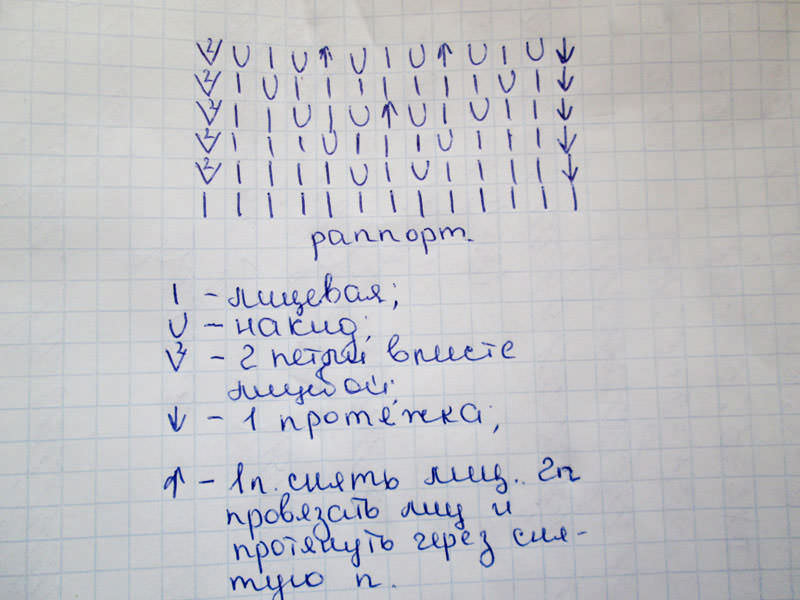 раппорт.
| – лицевая;
U – накид;
V2 – 2 петли вместе
лицевой;
↓ – 1 протяжка;
↑ – 1п. снять лиц. 2п
провязать лиц и
протянуть через сня-
тую п.